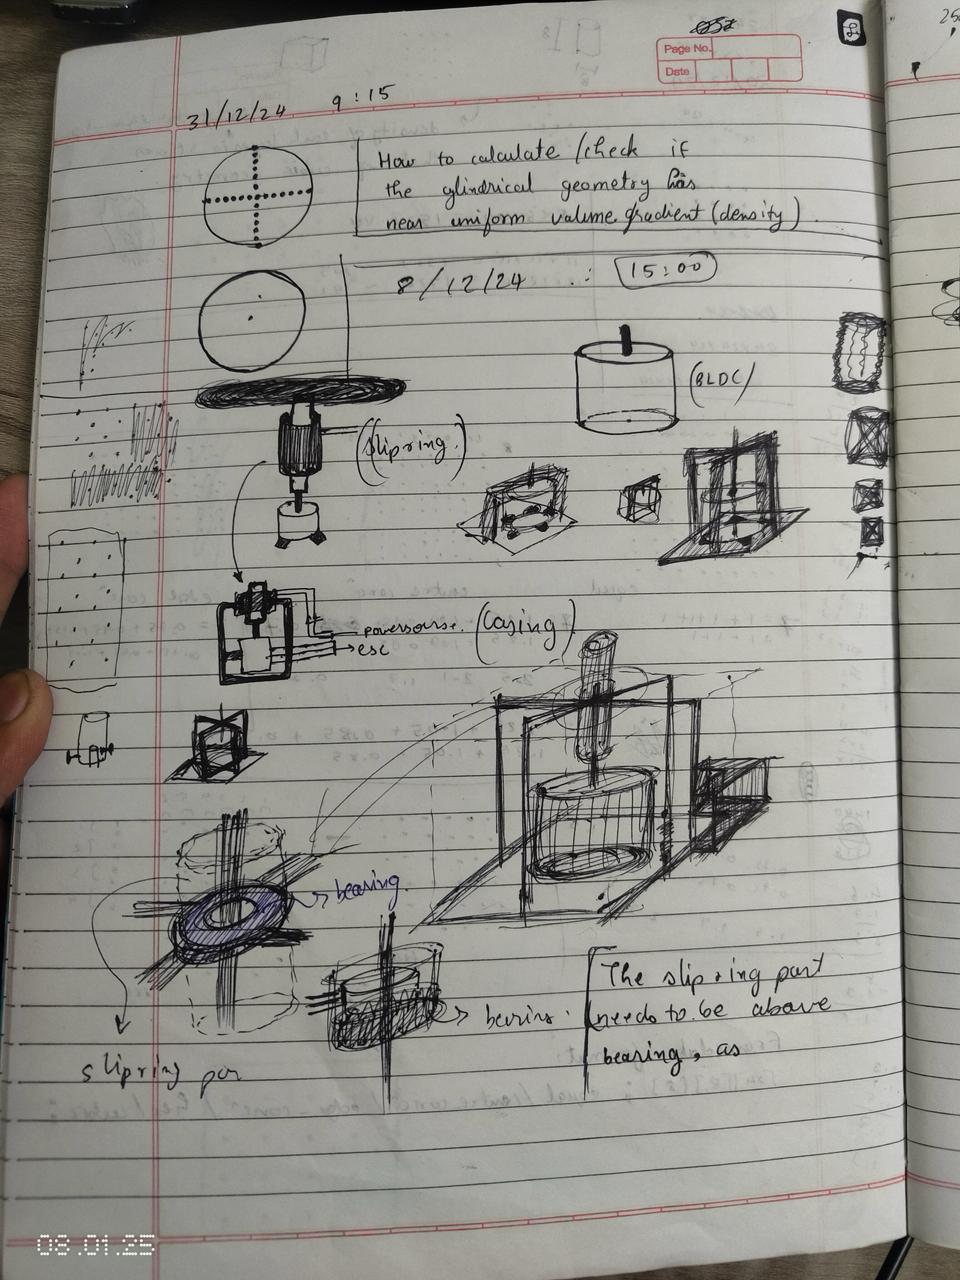 Page No.
Date
31/12/24 9:15
How to calculate /check if
the cylindrical geometry has
near uniform volume gradient (density).
8/12/24 : 15:00
(BLDC)
(slipring)
powersourse.
esc
(Casing)
bearing.
The slipring part
needs to be above
bearing, as
slipring par
08.01.25